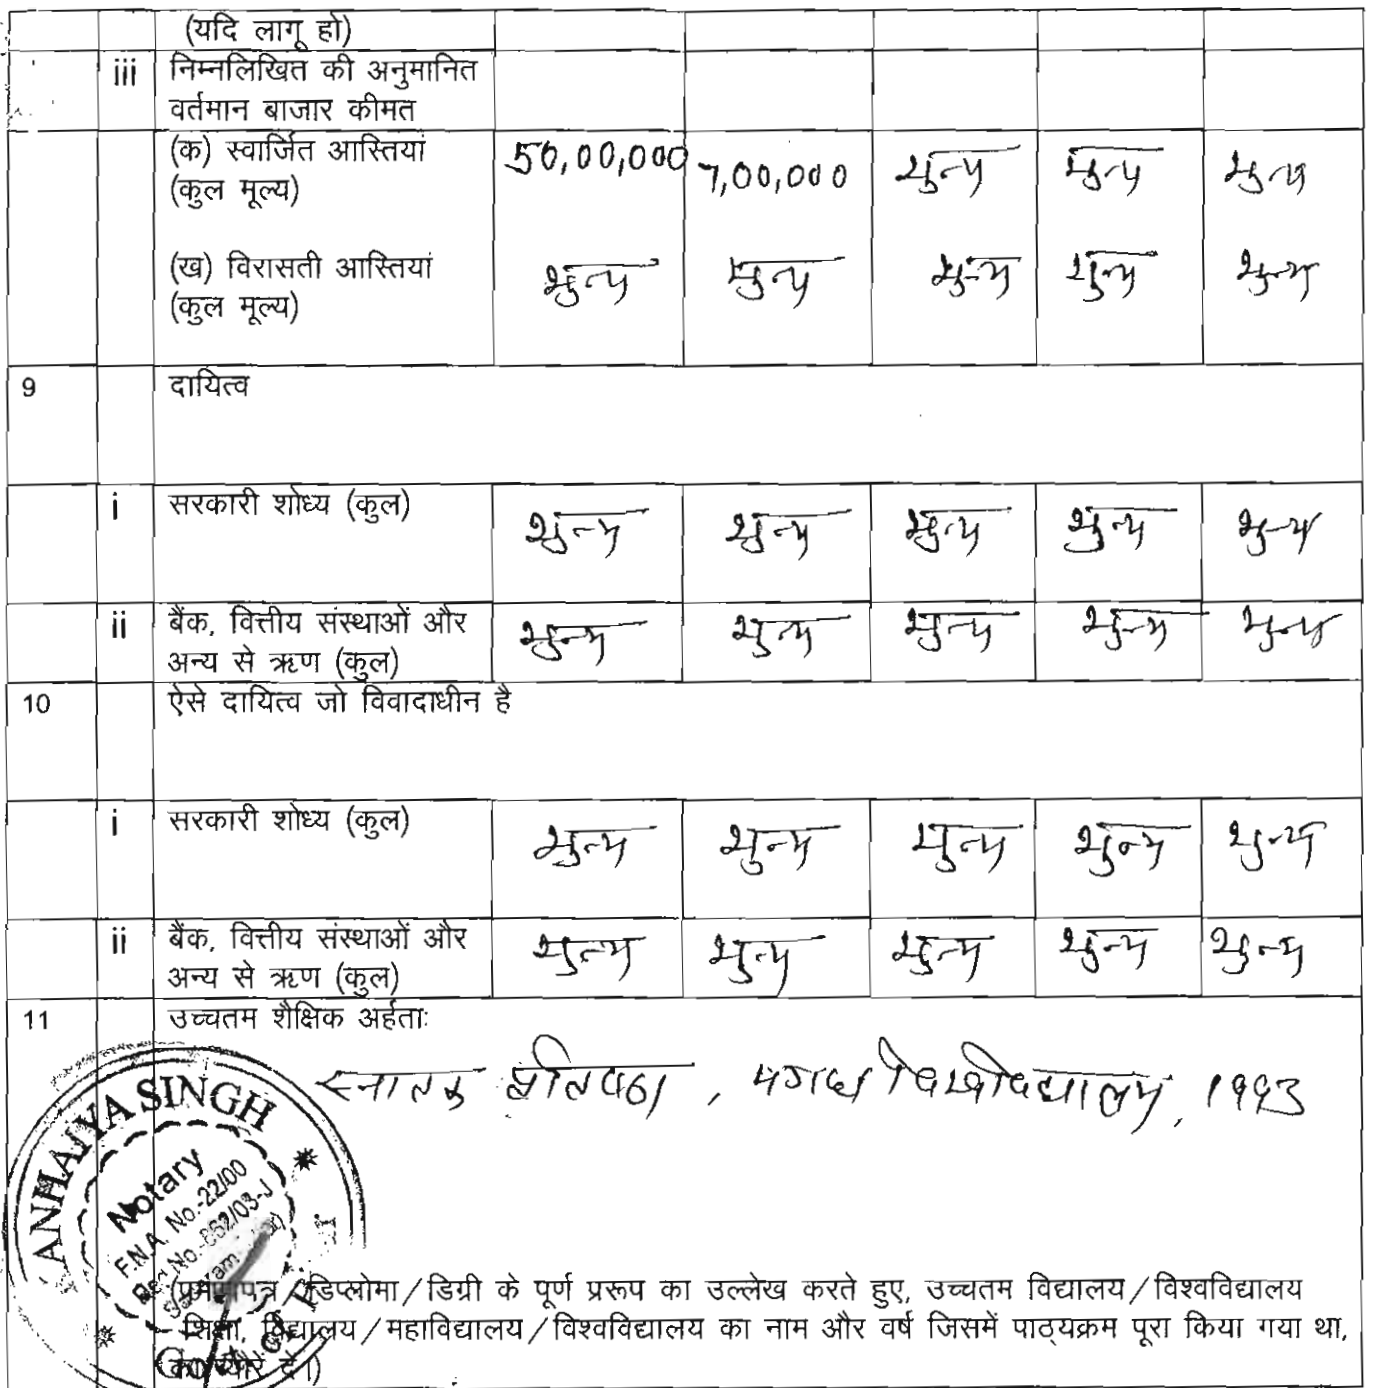 (यदि लागू हो)
iii निम्नलिखित की अनुमानित
वर्तमान बाजार कीमत
(क) स्वार्जित आस्तियां 50,00,000 7,00,000 शुन्य शुन्य शुन्य
(कुल मूल्य)
(ख) विरासती आस्तियां शुन्य शुन्य शुन्य शुन्य शुन्य
(कुल मूल्य)
9 दायित्व
i सरकारी शोध्य (कुल) शुन्य शुन्य शुन्य शुन्य शुन्य
ii बैंक, वित्तीय संस्थाओं और शुन्य शुन्य शुन्य शुन्य शुन्य
अन्य से ऋण (कुल)
10 ऐसे दायित्व जो विवादाधीन है
i सरकारी शोध्य (कुल) शुन्य शुन्य शुन्य शुन्य शुन्य
ii बैंक, वित्तीय संस्थाओं और शुन्य शुन्य शुन्य शुन्य शुन्य
अन्य से ऋण (कुल)
11 उच्चतम शैक्षिक अर्हताः
स्नातक प्रतिष्ठा, मगध विश्वविद्यालय, १९९३
ANHAIYA SINGH
Notary
F.N.A. No.-22/00
No.-862/03-J
(प्रमाणपत्र/डिप्लोमा/डिग्री के पूर्ण प्ररूप का उल्लेख करते हुए, उच्चतम विद्यालय/विश्वविद्यालय
शिक्षा, विद्यालय/महाविद्यालय/विश्वविद्यालय का नाम और वर्ष जिसमें पाठ्यक्रम पूरा किया गया था,
दें।)